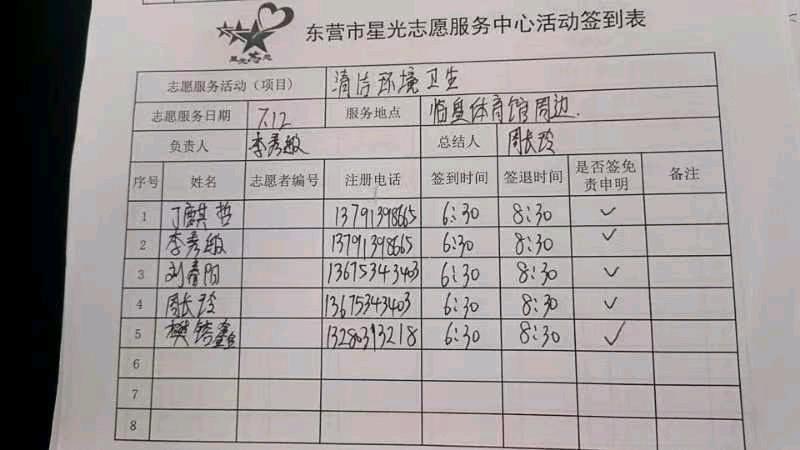 星光志愿
东营市星光志愿服务中心活动签到表
志愿服务活动（项目） 清洁环境卫生
志愿服务日期 7.12 服务地点 临盘体育馆周边.
负责人 李秀敏 总结人 周长玲
序号 姓名 志愿者编号 注册电话 签到时间 签退时间 是否签免责申明 备注
1 丁麒哲 13791398665 6:30 8:30 ✓
2 李秀敏 13791398665 6:30 8:30 ✓
3 刘春阳 13675343403 6:30 8:30 ✓
4 周长玲 13675343403 6:30 8:30 ✓
5 樊锛鑫 13280313218 6:30 8:30 ✓
6
7
8